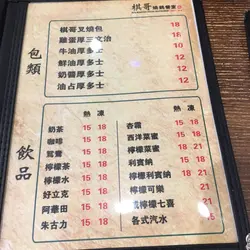 棋哥
包類
棋哥叉燒包 18
雞蛋厚三文治 18
牛油厚多士 12
鮮油厚多士 12
奶醬厚多士 12
油占厚多士 12
飲品
熱 凍
奶茶 15 18
咖啡 15 18
鴛鴦 15 18
檸檬茶 15 18
檸檬水 15 18
好立克 15 18
阿華田 15 18
朱古力 15 18
熱 凍
杏霜 15 18
西洋菜蜜 15 18
檸檬蜜 18 21
利賓納 15 18
檸檬利賓納 18 21
檸檬可樂 18 21
檸七喜 18 21
各式汽水 15